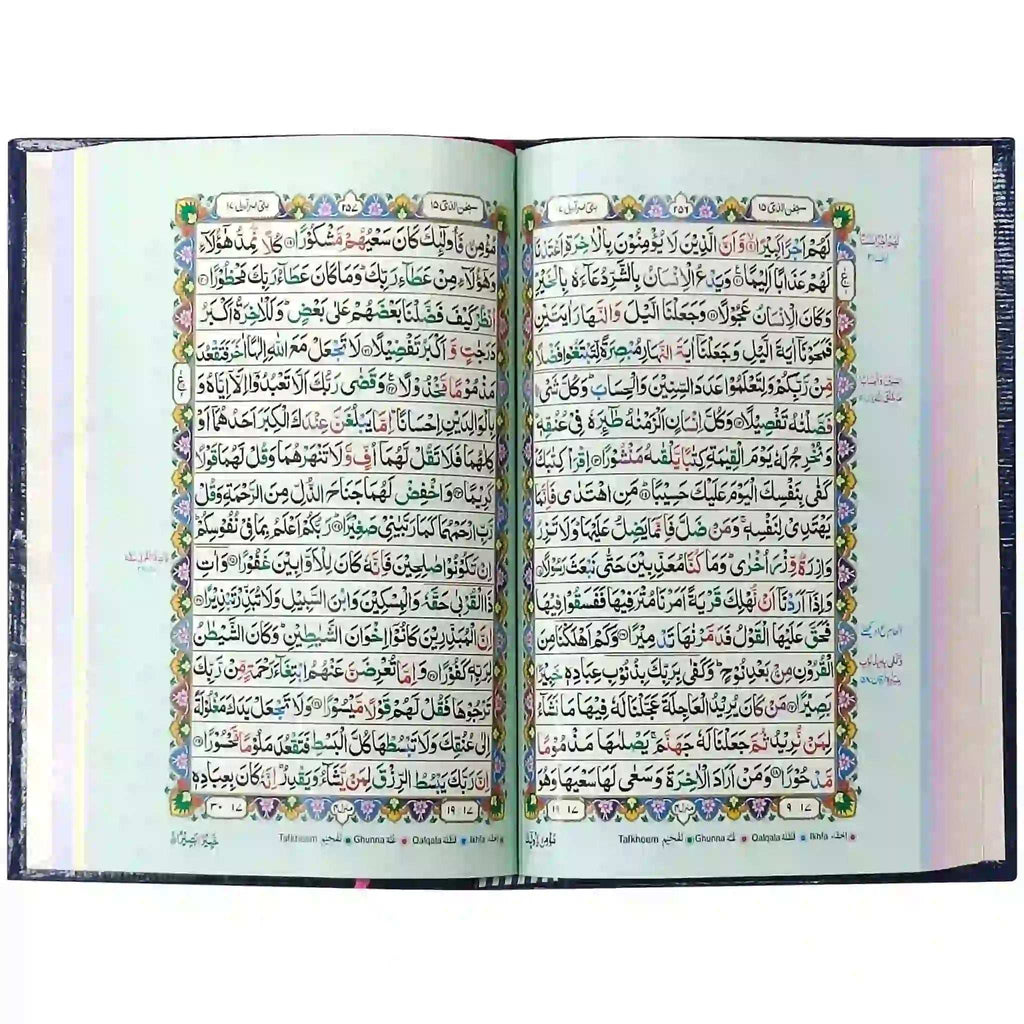 سبحٰن الذی ١٥
٢٥٦
بنی اسرآءیل ١٧
لَهُمْ اَجْرًا كَبِيْرًا ۙ‏﴿۹﴾ وَّاَنَّ الَّذِيْنَ لَا يُؤْمِنُوْنَ بِالْاٰخِرَةِ اَعْتَدْنَا
لَهُمْ عَذَابًا اَلِيْمًا ﴿۱۰﴾ وَيَدْعُ الْاِنْسَانُ بِالشَّرِّ دُعَآءَهٗ بِالْخَيْرِ ؕ
وَكَانَ الْاِنْسَانُ عَجُوْلًا ﴿۱۱﴾ وَجَعَلْنَا الَّيْلَ وَالنَّهَارَ اٰيَتَيْنِ
فَمَحَوْنَاۤ اٰيَةَ الَّيْلِ وَجَعَلْنَاۤ اٰيَةَ النَّهَارِ مُبْصِرَةً لِّتَبْتَغُوْا فَضْلًا
مِّنْ رَّبِّكُمْ وَلِتَعْلَمُوْا عَدَدَ السِّنِيْنَ وَالْحِسَابَ ؕ وَكُلَّ شَیْءٍ
فَصَّلْنٰهُ تَفْصِيْلًا ﴿۱۲﴾ وَكُلَّ اِنْسَانٍ اَلْزَمْنٰهُ طٰٓئِرَهٗ فِیْ عُنُقِهٖ ؕ
وَنُخْرِجُ لَهٗ يَوْمَ الْقِيٰمَةِ كِتٰبًا يَّلْقٰىهُ مَنْشُوْرًا ﴿۱۳﴾ اِقْرَاْ كِتٰبَكَ ؕ
كَفٰی بِنَفْسِكَ الْيَوْمَ عَلَيْكَ حَسِيْبًا ؕ﴿۱۴﴾ مَنِ اهْتَدٰی فَاِنَّمَا
يَهْتَدِیْ لِنَفْسِهٖ ۚ وَمَنْ ضَلَّ فَاِنَّمَا يَضِلُّ عَلَيْهَا ؕ وَلَا تَزِرُ
وَازِرَةٌ وِّزْرَ اُخْرٰی ؕ وَمَا كُنَّا مُعَذِّبِيْنَ حَتّٰی نَبْعَثَ رَسُوْلًا ﴿۱۵﴾
وَاِذَاۤ اَرَدْنَاۤ اَنْ نُّهْلِكَ قَرْيَةً اَمَرْنَا مُتْرَفِيْهَا فَفَسَقُوْا فِيْهَا
فَحَقَّ عَلَيْهَا الْقَوْلُ فَدَمَّرْنٰهَا تَدْمِيْرًا ﴿۱۶﴾ وَكَمْ اَهْلَكْنَا مِنَ
الْقُرُوْنِ مِنْۢ بَعْدِ نُوْحٍ ؕ وَكَفٰی بِرَبِّكَ بِذُنُوْبِ عِبَادِهٖ خَبِيْرًۢا
بَصِيْرًا ﴿۱۷﴾ مَنْ كَانَ يُرِيْدُ الْعَاجِلَةَ عَجَّلْنَا لَهٗ فِيْهَا مَا نَشَآءُ
لِمَنْ نُّرِيْدُ ثُمَّ جَعَلْنَا لَهٗ جَهَنَّمَ ۚ يَصْلٰىهَا مَذْمُوْمًا
مَّدْحُوْرًا ﴿۱۸﴾ وَمَنْ اَرَادَ الْاٰخِرَةَ وَسَعٰی لَهَا سَعْيَهَا وَهُوَ
١٧ ٩
منزل ٤
١٧ ١٩
اخفاء Ikhfa قلقلة Qalqala غنة Ghunna تفخيم Talkheem
سبحٰن الذی ١٥
٢٥٧
بنی اسرآءیل ١٧
مُؤْمِنٌ فَاُولٰٓئِكَ كَانَ سَعْيُهُمْ مَّشْكُوْرًا ﴿۱۹﴾ كُلًّا نُّمِدُّ هٰۤؤُلَآءِ
وَهٰۤؤُلَآءِ مِنْ عَطَآءِ رَبِّكَ ؕ وَمَا كَانَ عَطَآءُ رَبِّكَ مَحْظُوْرًا ﴿۲۰﴾
اُنْظُرْ كَيْفَ فَضَّلْنَا بَعْضَهُمْ عَلٰی بَعْضٍ ؕ وَلَلْاٰخِرَةُ اَكْبَرُ
دَرَجٰتٍ وَّاَكْبَرُ تَفْضِيْلًا ﴿۲۱﴾ لَا تَجْعَلْ مَعَ اللّٰهِ اِلٰهًا اٰخَرَ فَتَقْعُدَ
مَذْمُوْمًا مَّخْذُوْلًا ﴿۲۲﴾ وَقَضٰی رَبُّكَ اَلَّا تَعْبُدُوْۤا اِلَّاۤ اِيَّاهُ وَ
بِالْوَالِدَيْنِ اِحْسَانًا ؕ اِمَّا يَبْلُغَنَّ عِنْدَكَ الْكِبَرَ اَحَدُهُمَاۤ اَوْ
كِلٰهُمَا فَلَا تَقُلْ لَّهُمَاۤ اُفٍّ وَّلَا تَنْهَرْهُمَا وَقُلْ لَّهُمَا قَوْلًا
كَرِيْمًا ﴿۲۳﴾ وَاخْفِضْ لَهُمَا جَنَاحَ الذُّلِّ مِنَ الرَّحْمَةِ وَقُلْ
رَّبِّ ارْحَمْهُمَا كَمَا رَبَّيٰنِیْ صَغِيْرًا ؕ﴿۲۴﴾ رَبُّكُمْ اَعْلَمُ بِمَا فِیْ نُفُوْسِكُمْ ؕ
اِنْ تَكُوْنُوْا صٰلِحِيْنَ فَاِنَّهٗ كَانَ لِلْاَوَّابِيْنَ غَفُوْرًا ﴿۲۵﴾ وَاٰتِ
ذَا الْقُرْبٰی حَقَّهٗ وَالْمِسْكِيْنَ وَابْنَ السَّبِيْلِ وَلَا تُبَذِّرْ تَبْذِيْرًا ﴿۲۶﴾
اِنَّ الْمُبَذِّرِيْنَ كَانُوْۤا اِخْوَانَ الشَّيٰطِيْنِ ؕ وَكَانَ الشَّيْطٰنُ
لِرَبِّهٖ كَفُوْرًا ﴿۲۷﴾ وَاِمَّا تُعْرِضَنَّ عَنْهُمُ ابْتِغَآءَ رَحْمَةٍ مِّنْ رَّبِّكَ
تَرْجُوْهَا فَقُلْ لَّهُمْ قَوْلًا مَّيْسُوْرًا ﴿۲۸﴾ وَلَا تَجْعَلْ يَدَكَ مَغْلُوْلَةً
اِلٰی عُنُقِكَ وَلَا تَبْسُطْهَا كُلَّ الْبَسْطِ فَتَقْعُدَ مَلُوْمًا مَّحْسُوْرًا ﴿۲۹﴾
اِنَّ رَبَّكَ يَبْسُطُ الرِّزْقَ لِمَنْ يَّشَآءُ وَيَقْدِرُ ؕ اِنَّهٗ كَانَ بِعِبَادِهٖ
١٧ ١٩
منزل ٤
١٧ ٣٠
خَبِيْرًۢا بَصِيْرًا
اخفاء Ikhfa قلقلة Qalqala غنة Ghunna تفخيم Talkheem